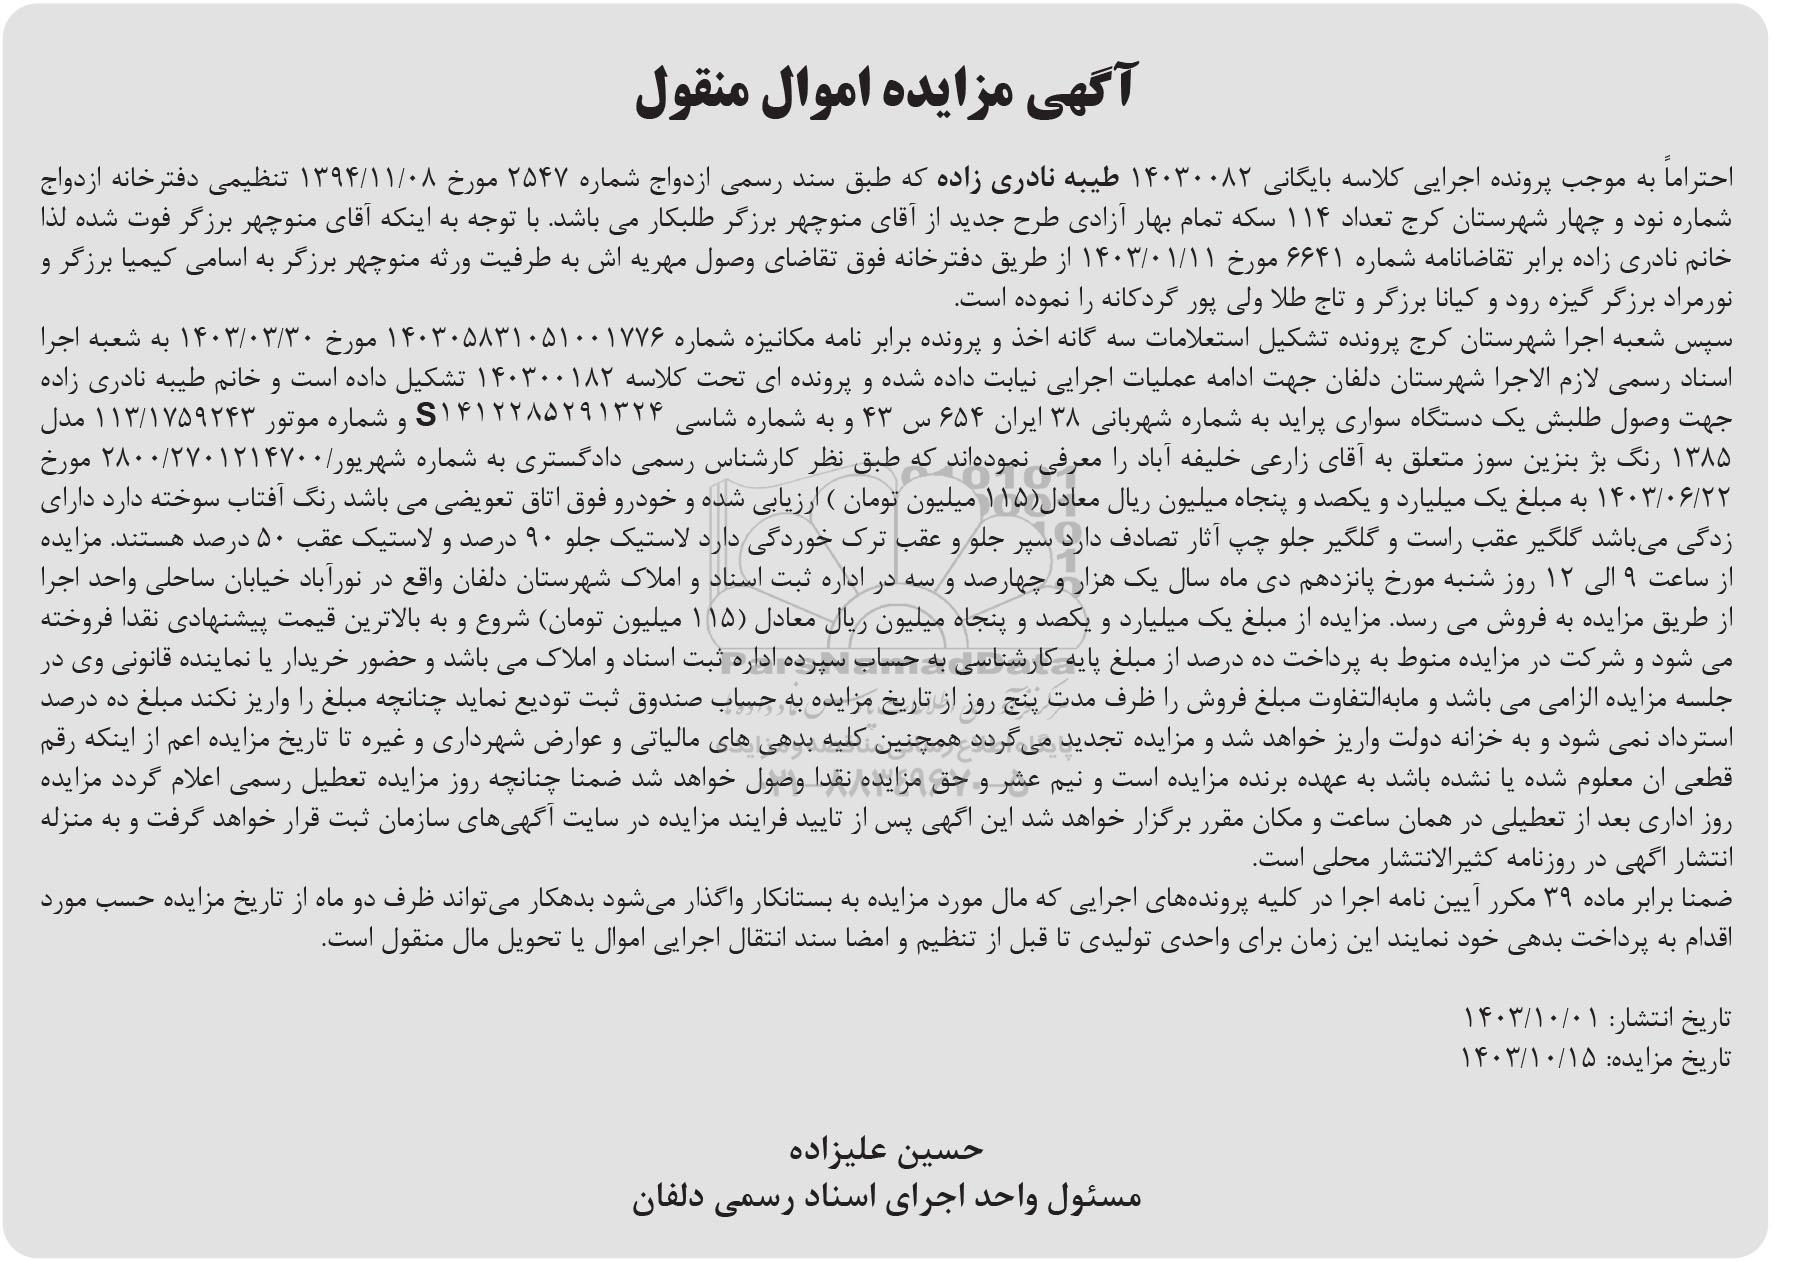 آگهی مزایده اموال منقول
احتراماً به موجب پرونده اجرایی کلاسه بایگانی ۱۴۰۳۰۰۸۲ طیبه نادری زاده که طبق سند رسمی ازدواج شماره ۲۵۴۷ مورخ ۱۳۹۴/۱۱/۰۸ تنظیمی دفترخانه ازدواج
شماره نود و چهار شهرستان کرج تعداد ۱۱۴ سکه تمام بهار آزادی طرح جدید از آقای منوچهر برزگر طلبکار می باشد. با توجه به اینکه آقای منوچهر برزگر فوت شده لذا
خانم نادری زاده برابر تقاضانامه شماره ۶۶۴۱ مورخ ۱۴۰۳/۰۱/۱۱ از طریق دفترخانه فوق تقاضای وصول مهریه اش به طرفیت ورثه منوچهر برزگر به اسامی کیمیا برزگر و
نورمراد برزگر گیزه رود و کیانا برزگر و تاج طلا ولی پور گردکانه را نموده است.
سپس شعبه اجرا شهرستان کرج پرونده تشکیل استعلامات سه گانه اخذ و پرونده برابر نامه مکانیزه شماره ۱۴۰۳۰۵۸۳۱۰۵۱۰۰۱۷۷۶ مورخ ۱۴۰۳/۰۳/۳۰ به شعبه اجرا
اسناد رسمی لازم الاجرا شهرستان دلفان جهت ادامه عملیات اجرایی نیابت داده شده و پرونده ای تحت کلاسه ۱۴۰۳۰۰۱۸۲ تشکیل داده است و خانم طیبه نادری زاده
جهت وصول طلبش یک دستگاه سواری پراید به شماره شهربانی ۳۸ ایران ۶۵۴ س ۴۳ و به شماره شاسی S۱۴۱۲۲۸۵۲۹۱۳۲۴ و شماره موتور ۱۱۳/۱۷۵۹۲۴۳ مدل
۱۳۸۵ رنگ بژ بنزین سوز متعلق به آقای زارعی خلیفه آباد را معرفی نموده‌اند که طبق نظر کارشناس رسمی دادگستری به شماره شهریور/۲۸۰۰/۲۷۰۱۲۱۴۷۰۰ مورخ
۱۴۰۳/۰۶/۲۲ به مبلغ یک میلیارد و یکصد و پنجاه میلیون ریال معادل(۱۱۵ میلیون تومان ) ارزیابی شده و خودرو فوق اتاق تعویضی می باشد رنگ آفتاب سوخته دارد دارای
زدگی می‌باشد گلگیر عقب راست و گلگیر جلو چپ آثار تصادف دارد سپر جلو و عقب ترک خوردگی دارد لاستیک جلو ۹۰ درصد و لاستیک عقب ۵۰ درصد هستند. مزایده
از ساعت ۹ الی ۱۲ روز شنبه مورخ پانزدهم دی ماه سال یک هزار و چهارصد و سه در اداره ثبت اسناد و املاک شهرستان دلفان واقع در نورآباد خیابان ساحلی واحد اجرا
از طریق مزایده به فروش می رسد. مزایده از مبلغ یک میلیارد و یکصد و پنجاه میلیون ریال معادل (۱۱۵ میلیون تومان) شروع و به بالاترین قیمت پیشنهادی نقدا فروخته
می شود و شرکت در مزایده منوط به پرداخت ده درصد از مبلغ پایه کارشناسی به حساب سپرده اداره ثبت اسناد و املاک می باشد و حضور خریدار یا نماینده قانونی وی در
جلسه مزایده الزامی می باشد و مابه‌التفاوت مبلغ فروش را ظرف مدت پنج روز از تاریخ مزایده به حساب صندوق ثبت تودیع نماید چنانچه مبلغ را واریز نکند مبلغ ده درصد
استرداد نمی شود و به خزانه دولت واریز خواهد شد و مزایده تجدید می‌گردد همچنین کلیه بدهی های مالیاتی و عوارض شهرداری و غیره تا تاریخ مزایده اعم از اینکه رقم
قطعی ان معلوم شده یا نشده باشد به عهده برنده مزایده است و نیم عشر و حق مزایده نقدا وصول خواهد شد ضمنا چنانچه روز مزایده تعطیل رسمی اعلام گردد مزایده
روز اداری بعد از تعطیلی در همان ساعت و مکان مقرر برگزار خواهد شد این اگهی پس از تایید فرایند مزایده در سایت آگهی‌های سازمان ثبت قرار خواهد گرفت و به منزله
انتشار اگهی در روزنامه کثیرالانتشار محلی است.
ضمنا برابر ماده ۳۹ مکرر آیین نامه اجرا در کلیه پرونده‌های اجرایی که مال مورد مزایده به بستانکار واگذار می‌شود بدهکار می‌تواند ظرف دو ماه از تاریخ مزایده حسب مورد
اقدام به پرداخت بدهی خود نمایند این زمان برای واحدی تولیدی تا قبل از تنظیم و امضا سند انتقال اجرایی اموال یا تحویل مال منقول است.
تاریخ انتشار: ۱۴۰۳/۱۰/۰۱
تاریخ مزایده: ۱۴۰۳/۱۰/۱۵
حسین علیزاده
مسئول واحد اجرای اسناد رسمی دلفان
ParsNamadData
پایگاه اطلاع رسانی مناقصه و مزایده
۰۲۱-۸۸۳۴۹۶۷۰-۵